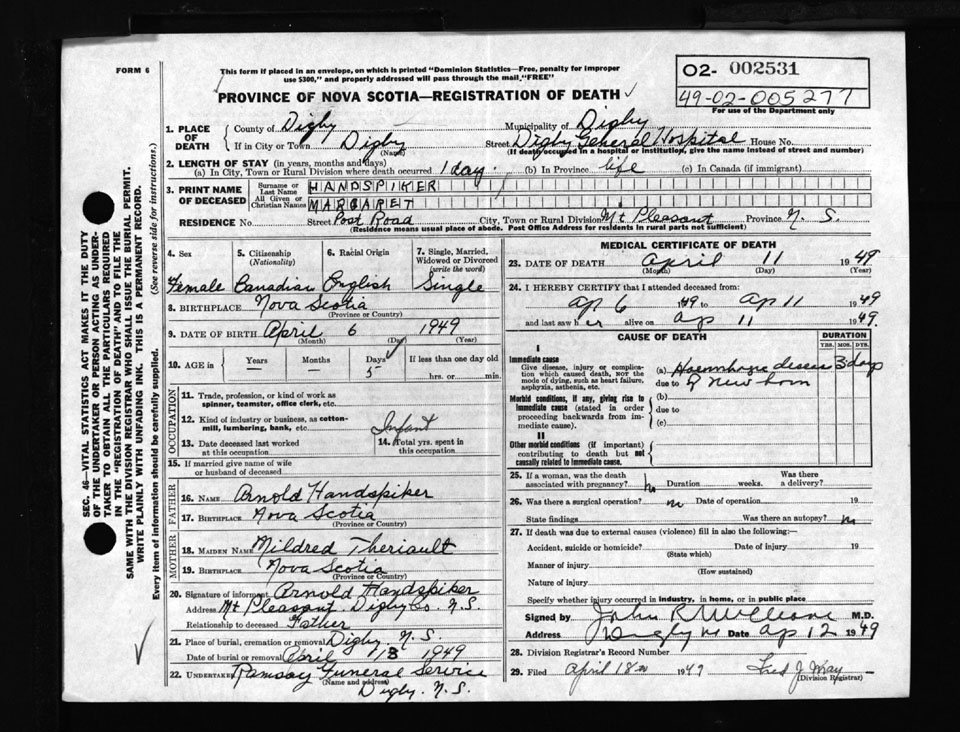 FORM 6
This form if placed in an envelope, on which is printed "Dominion Statistics—Free, penalty for improper
use $300," and properly addressed will pass through the mail "FREE"
PROVINCE OF NOVA SCOTIA—REGISTRATION OF DEATH
02- 002531
49-02-005277
For use of the Department only
1. PLACE OF DEATH
County of Digby
Municipality of Digby
If in City or Town Digby (Name)
Street Digby General Hospital House No.
(If death occurred in a hospital or institution, give the name instead of street and number)
2. LENGTH OF STAY (in years, months and days)
(a) In City, Town or Rural Division where death occurred 1 day. (b) In Province life (c) In Canada (if immigrant)
3. PRINT NAME OF DECEASED
Surname or Last Name HANDSPIKER
All Given or Christian Names MARGARET
RESIDENCE No. Street Post Road City, Town or Rural Division Mt Pleasant Province N. S.
(Residence means usual place of abode. Post Office Address for residents in rural parts not sufficient)
4. Sex Female
5. Citizenship (Nationality) Canadian
6. Racial Origin English
7. Single, Married, Widowed or Divorced (write the word) Single
8. BIRTHPLACE Nova Scotia
(Province or Country)
9. DATE OF BIRTH April 6 1949
(Month) (Day) (Year)
10. AGE in Years — Months — Days 5 If less than one day old
hrs. or min.
OCCUPATION
11. Trade, profession, or kind of work as
spinner, teamster, office clerk, etc.
12. Kind of industry or business, as cotton-
mill, lumbering, bank, etc. Infant
13. Date deceased last worked
at this occupation
14. Total yrs. spent in
this occupation
15. If married give name of wife
or husband of deceased
FATHER
16. NAME Arnold Handspiker
17. BIRTHPLACE Nova Scotia
(Province or Country)
MOTHER
18. MAIDEN NAME Mildred Theriault
19. BIRTHPLACE Nova Scotia
(Province or Country)
20. Signature of informant Arnold Handspiker
Address Mt Pleasant. Digby Co. N. S.
Relationship to deceased Father
21. Place of burial, cremation or removal Digby N. S.
Date of burial or removal April 13 1949
22. UNDERTAKER Ramsay Funeral Service
(Name and address)
Digby. N. S.
MEDICAL CERTIFICATE OF DEATH
23. DATE OF DEATH April 11 1949
(Month) (Day) (Year)
24. I HEREBY CERTIFY that I attended deceased from:
Ap 6 1949 to Ap 11 1949
and last saw her alive on Ap 11 1949.
CAUSE OF DEATH
DURATION
YRS. MOS. DYS.
I
Immediate cause
Give disease, injury or complica-
tion which caused death, NOT the
mode of dying, such as heart failure,
asphyxia, asthenia, etc.
(a) Haemorrhagic disease 3 days
due to of New born
Morbid conditions, if any, giving rise to
immediate cause (stated in order
proceeding backwards from im-
mediate cause).
(b)
due to
(c)
II
Other morbid conditions (if important)
contributing to death but not
causally related to immediate cause.
25. If a woman, was the death
associated with pregnancy? no Duration weeks. Was there
a delivery?
26. Was there a surgical operation? no Date of operation 19
State findings Was there an autopsy? no
27. If death was due to external causes (violence) fill in also the following:—
Accident, suicide or homicide? Date of injury 19
(State which)
Manner of injury
(How sustained)
Nature of injury
Specify whether injury occurred in industry, in home, or in public place
Signed by John R McCleave M.D.
Address Digby NS Date Ap 12 1949
28. Division Registrar's Record Number
29. Filed April 18 1949 Fred J. Wray
(Division Registrar)
SEC. 46—VITAL STATISTICS ACT MAKES IT THE DUTY
OF THE UNDERTAKER OR PERSON ACTING AS UNDER-
TAKER TO OBTAIN ALL THE PARTICULARS REQUIRED
IN THE "REGISTRATION OF DEATH" AND TO FILE THE
SAME WITH THE DIVISION REGISTRAR WHO SHALL ISSUE THE BURIAL PERMIT.
WRITE PLAINLY WITH UNFADING INK. THIS IS A PERMANENT RECORD.
Every item of information should be carefully supplied. (See reverse side for instructions.)